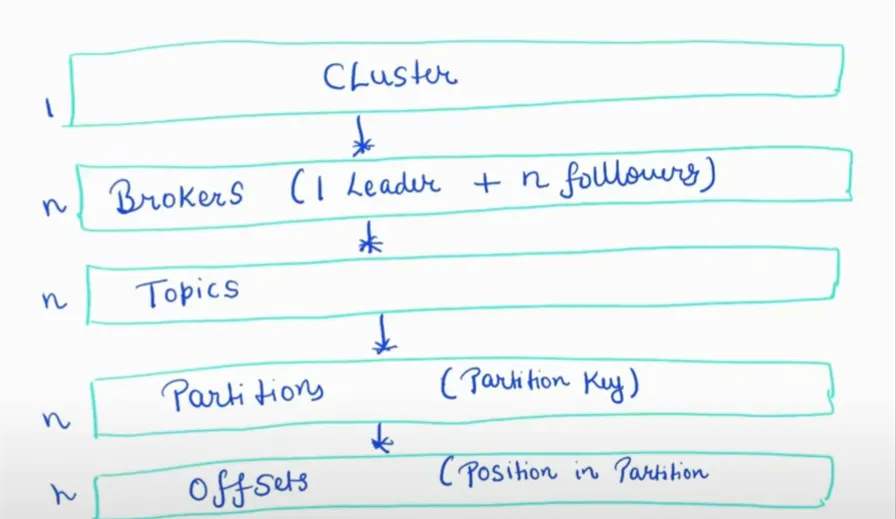 1 CLuster
n BrokerS (1 Leader + n followers)
n Topics
n Partitions (Partition Key)
n OffSets (Position in Partition